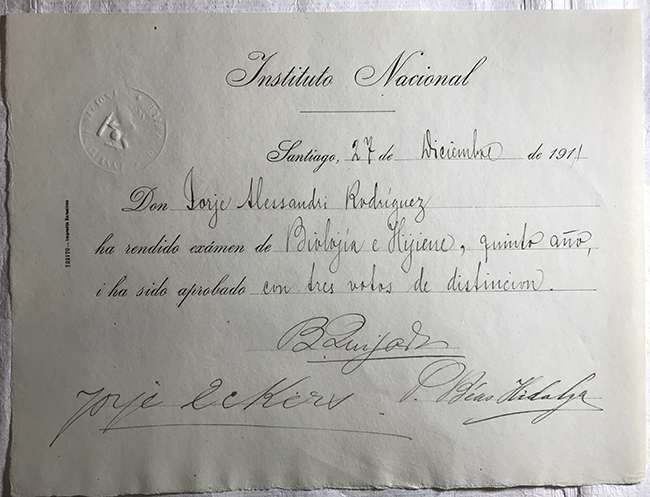 Instituto Nacional
Santiago, 27 de Diciembre de 1911
Don Jorje Alessandri Rodríguez
ha rendido exámen de Biolojía e Hijiene, quinto año,
i ha sido aprobado con tres votos de distincion.
B. Quijada
Jorje Eckers
P. Béas Hidalgo